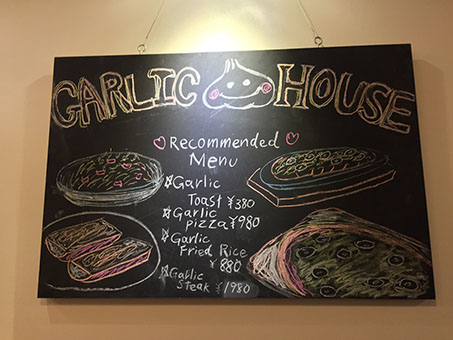 GARLIC HOUSE
Recommended
Menu
Garlic
Toast ¥380
Garlic
pizza ¥980
Garlic
Fried Rice
¥880
Garlic
Steak ¥1980